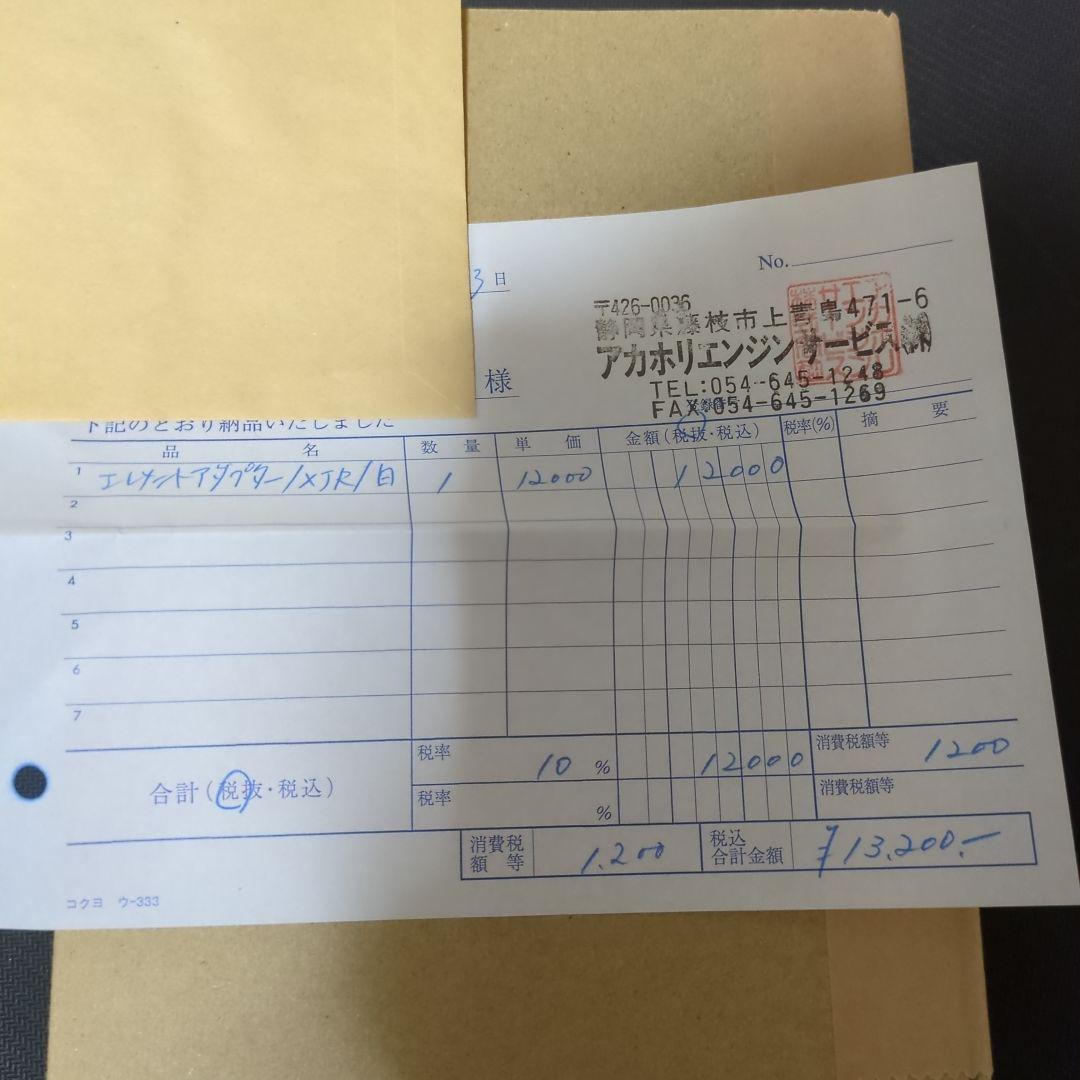 3日
No.
〒426-0036
静岡県藤枝市上青島471-6
アカホリエンジンサービス㈱
TEL:054-645-1248
FAX:054-645-1269
様
下記のとおり納品いたしました
品名 数量 単価 金額(税抜・税込) 税率(%) 摘要
1 エレメントアダプター/XJR/白 1 12000 12000
2
3
4
5
6
7
合計(税抜・税込) 税率 10% 12000 消費税額等 1200
税率 % 消費税額等
消費税額等 1.200 税込合計金額 ¥13,200.-
コクヨ ウ-333